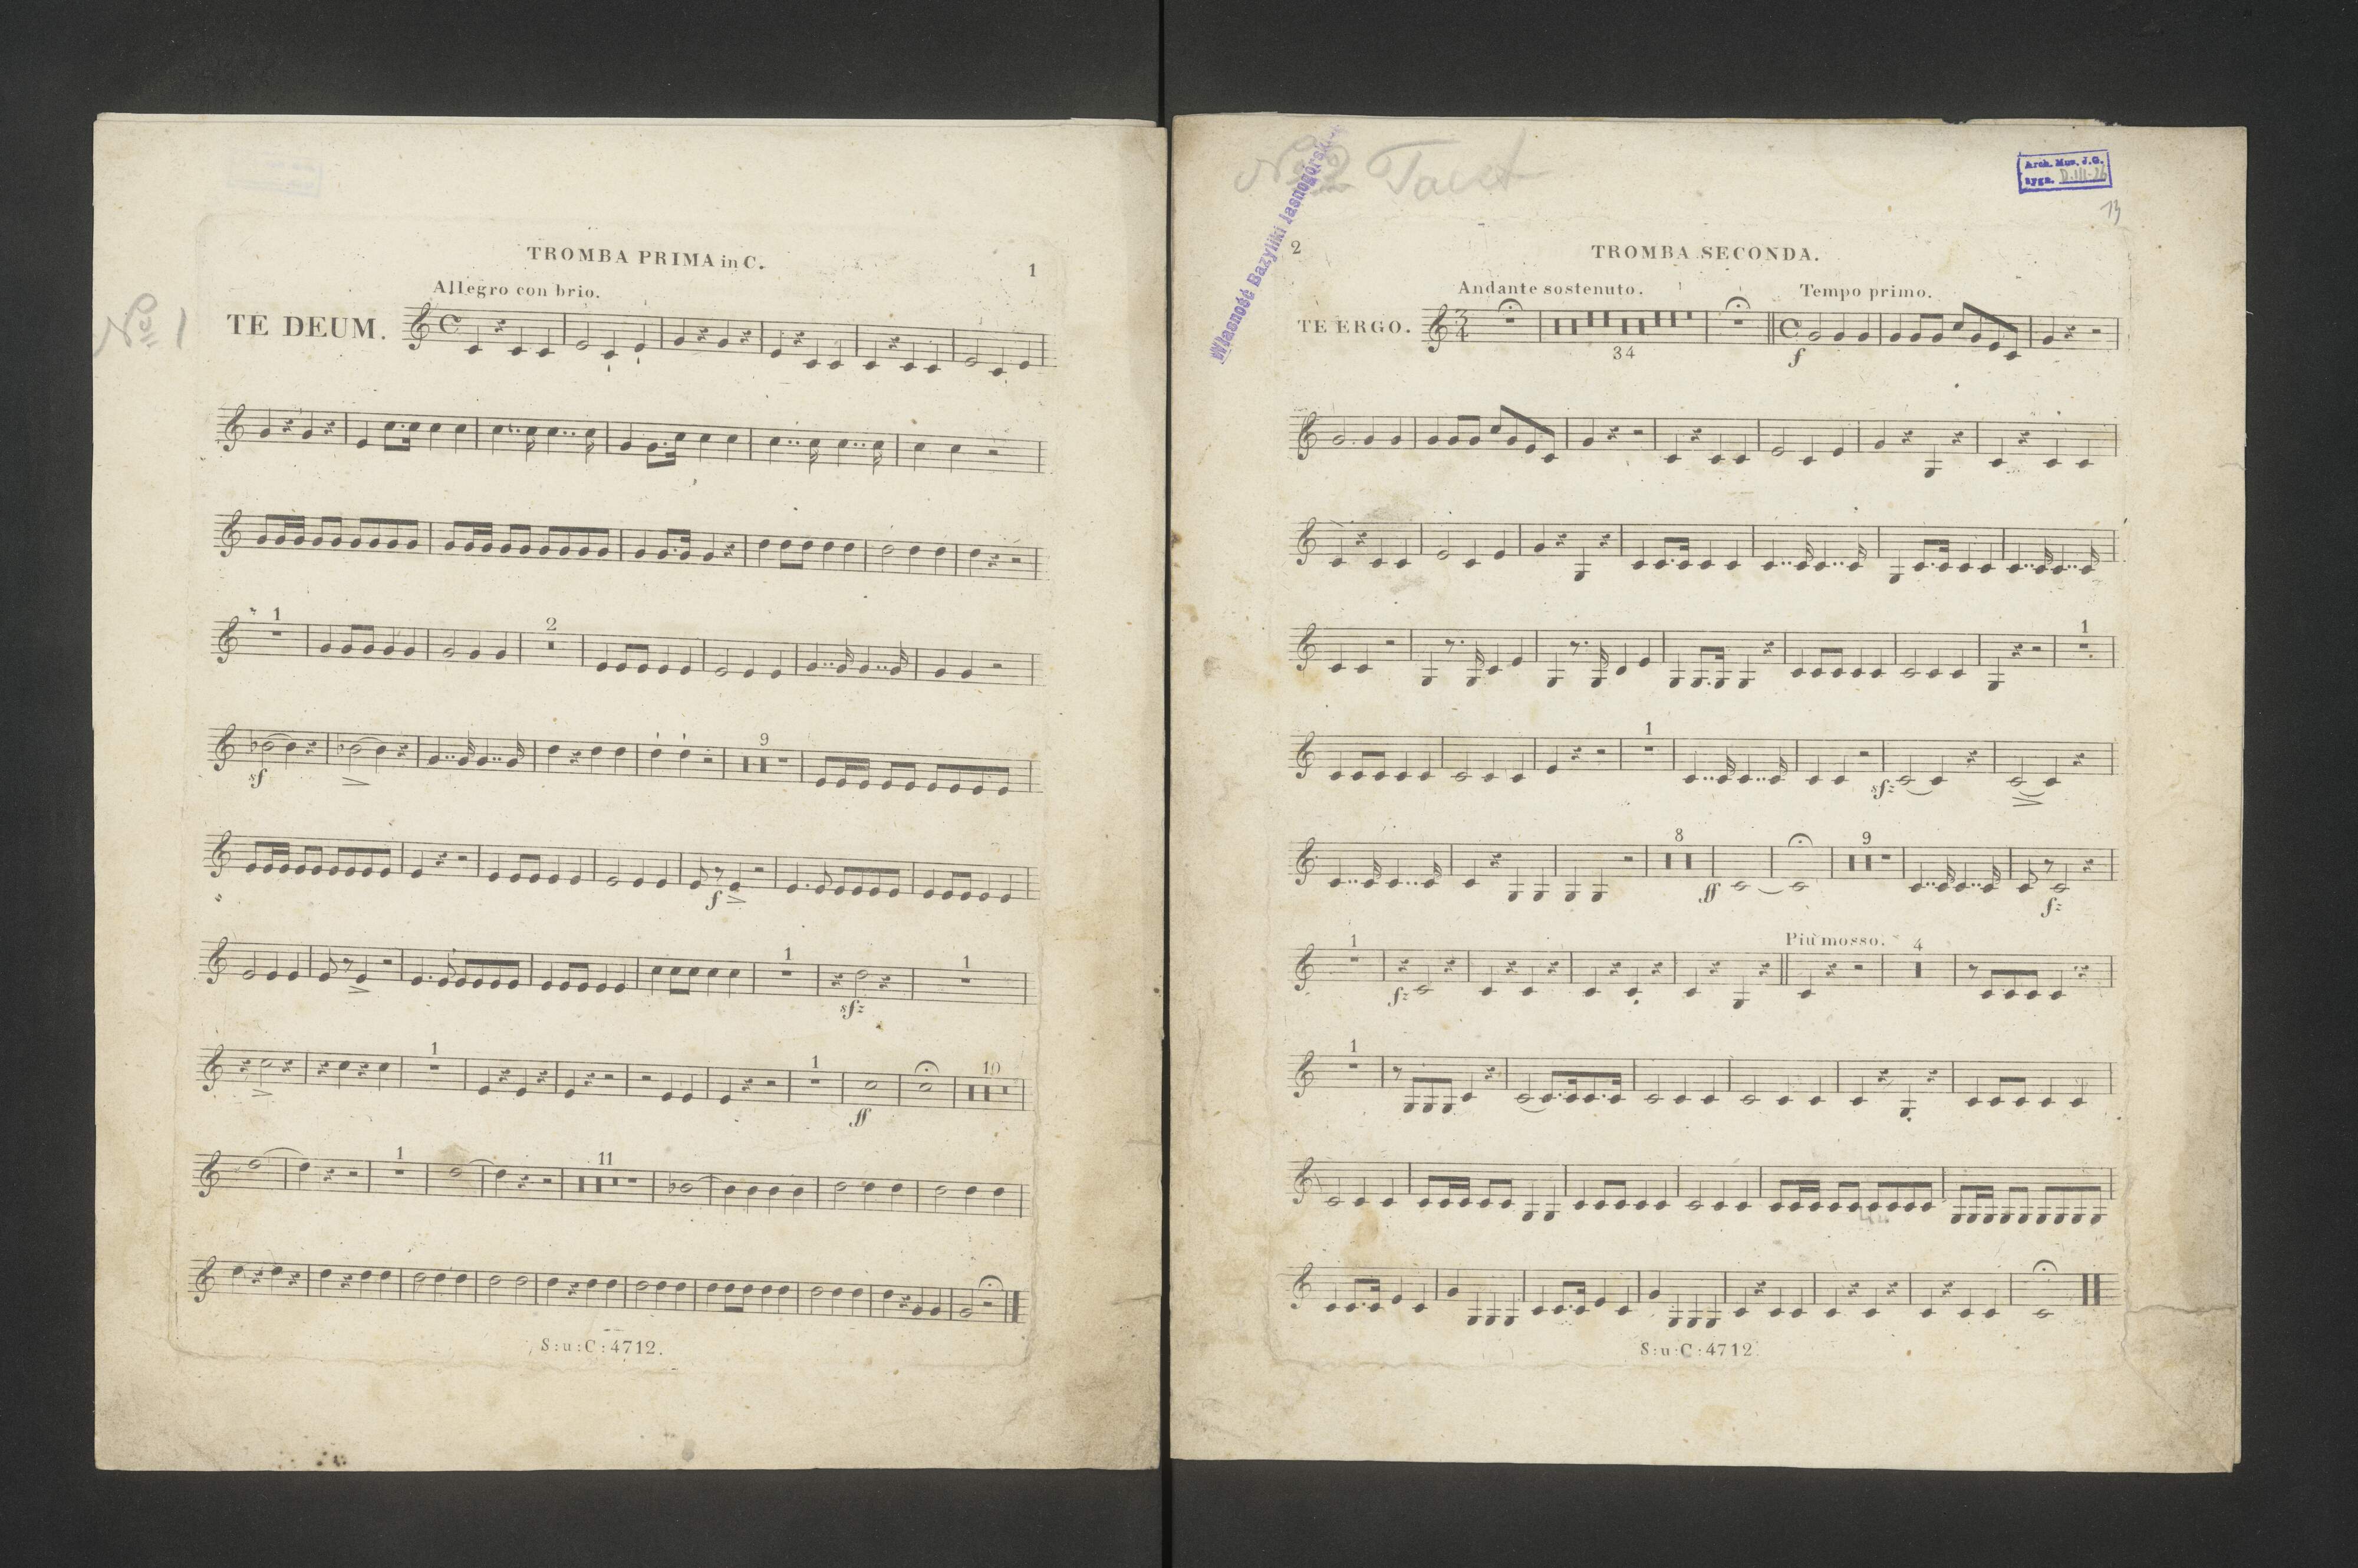 TROMBA PRIMA in C.
1
Allegro con brio.
No 1
TE DEUM.
1
2
sf
9
f
1
1
sfz
1
1
ff
10
1
11
S:u:C:4712.
No 2 Tacet
Własność Bazyliki Jasnogórskiej
Arch. Mus. J.G.
sygn. D.III-26
13
2
TROMBA SECONDA.
Andante sostenuto.
Tempo primo.
TE ERGO.
3
4
34
f
1
1
sfz
8
9
ff
fz
1
Più mosso.
4
fz
1
S:u:C:4712.